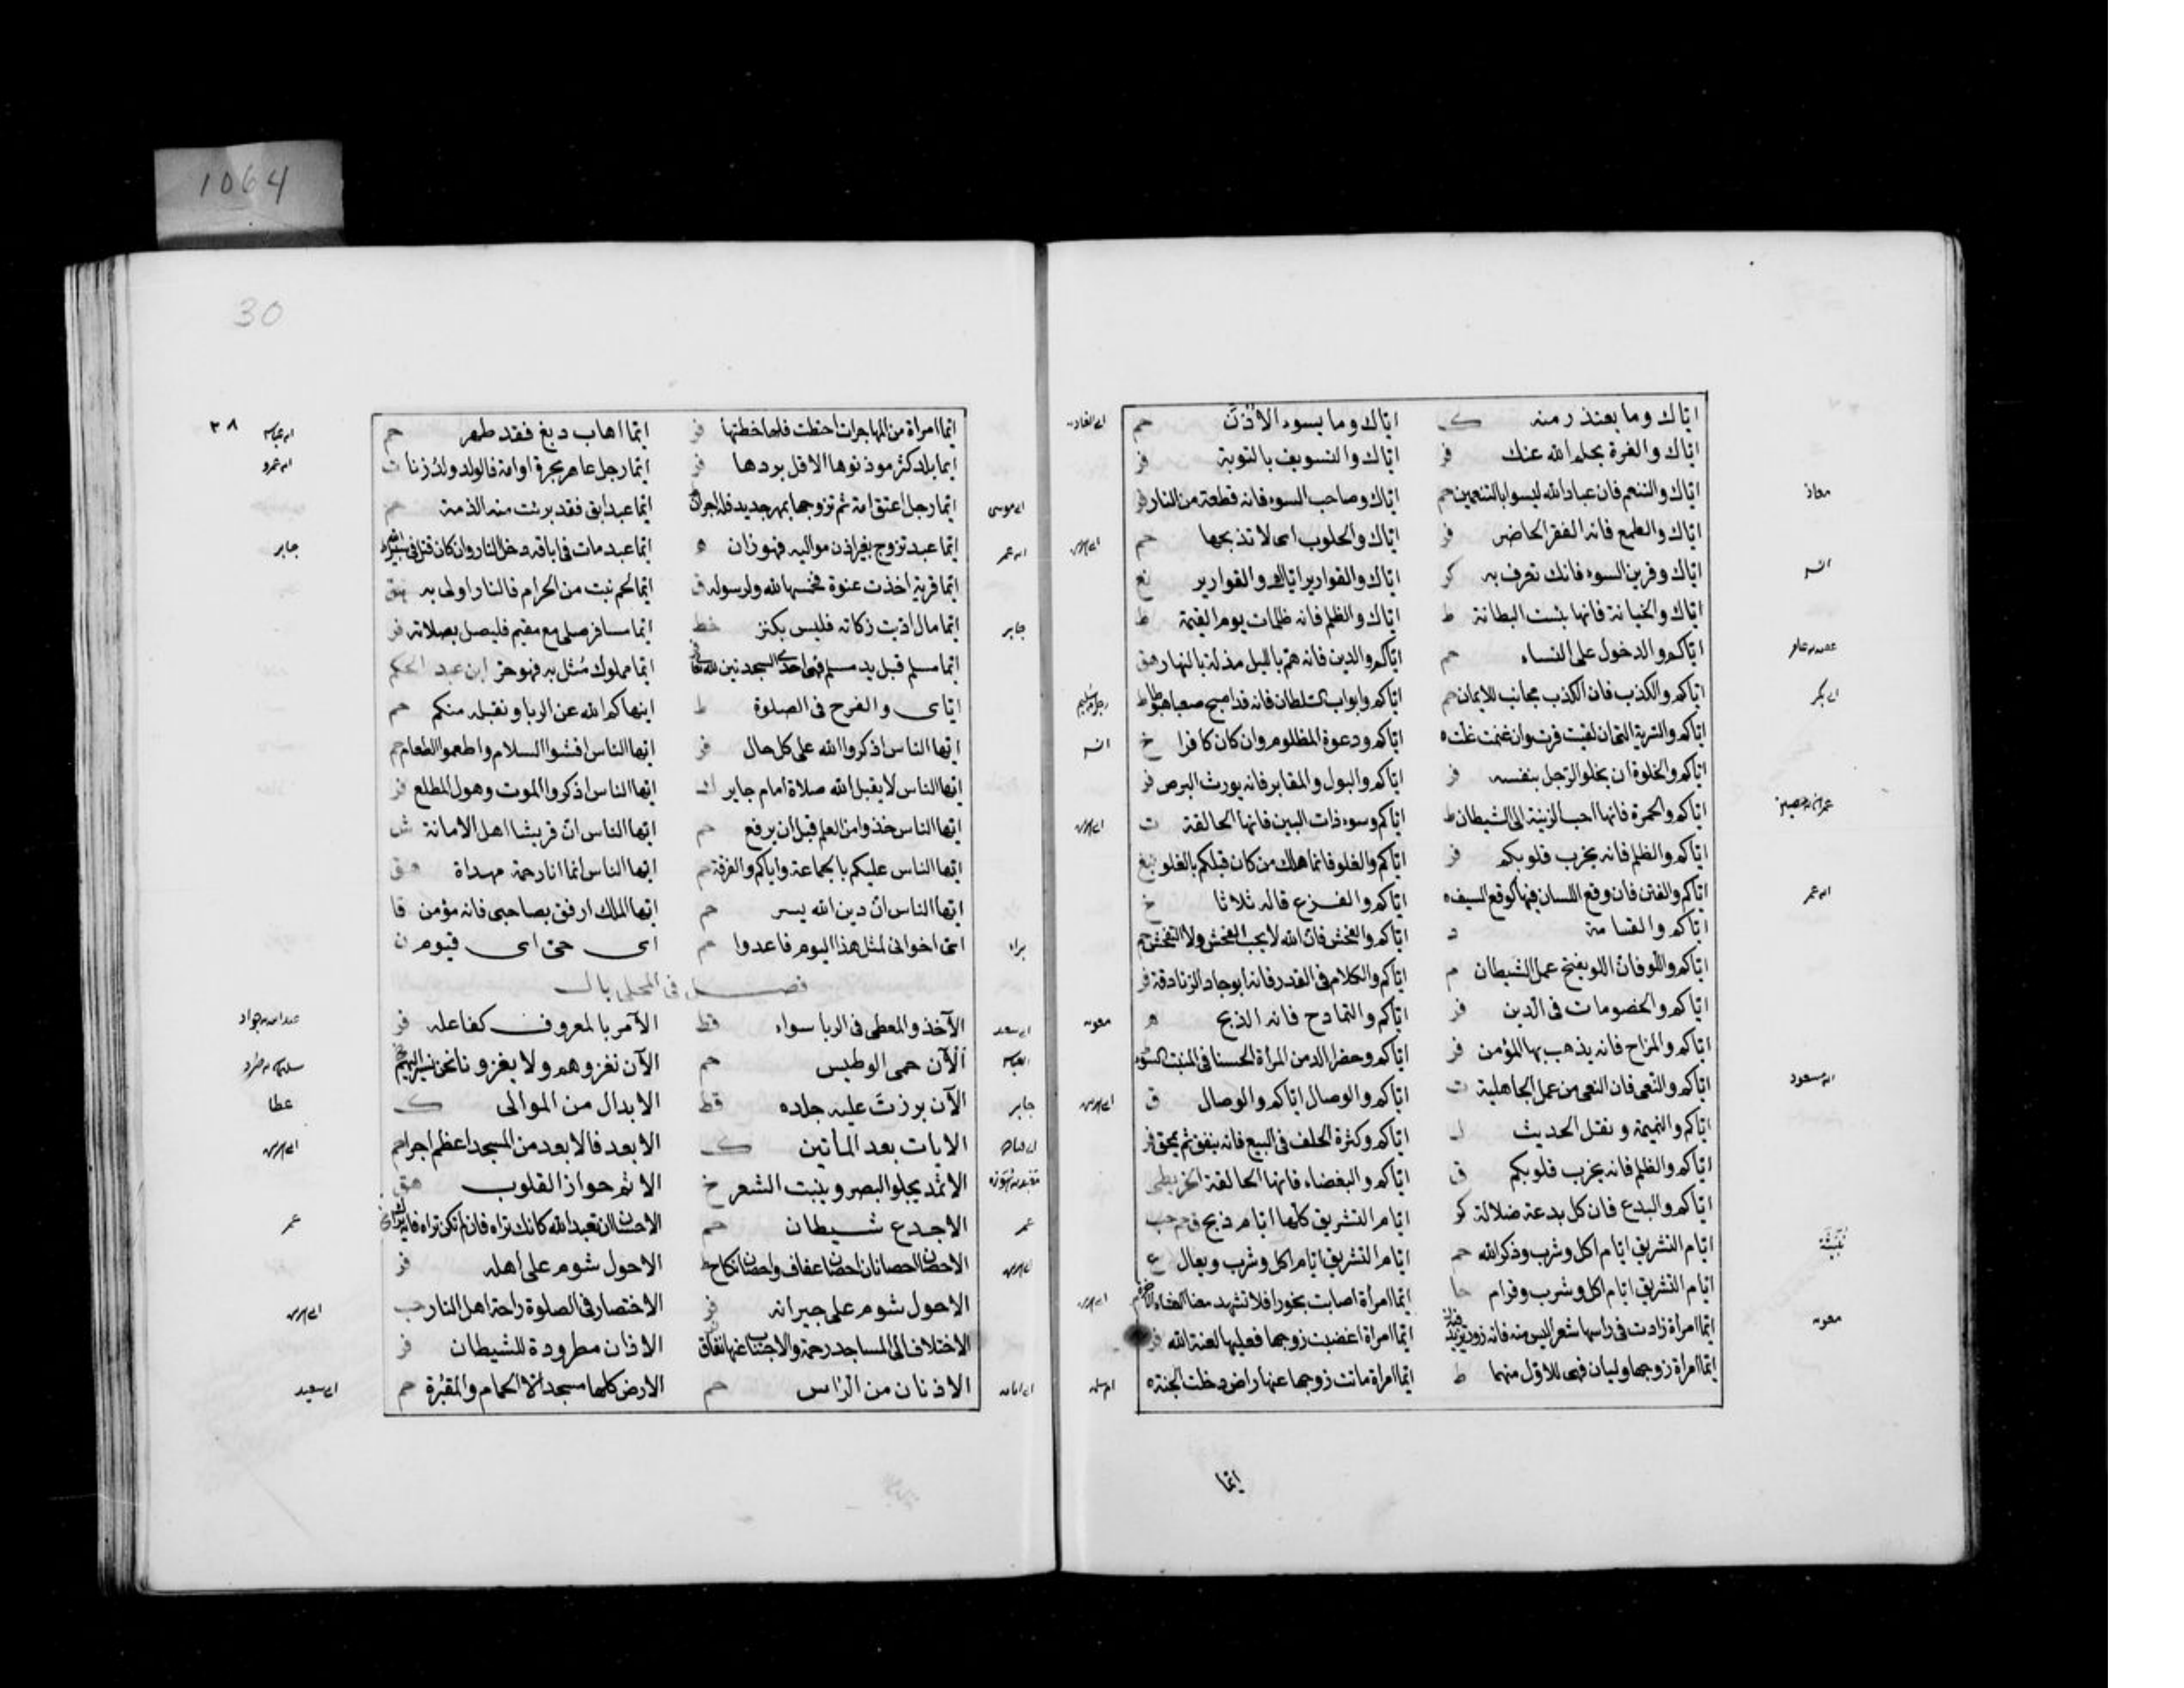 1064
اياك وما يعتذر منه ك اياك وما يسوء الاذن حم
اياك والغرة بحلم الله عنك فر اياك والتسويف بالتوبة فر
معاذ اياك والتنعم فان عباد الله ليسوا بالتنعمين حم اياك وصاحب السوء فانه قطعة من النار فر
اياك والطمع فانه الفقر الحاضر فر اياك والحلوب اى لا تذبحها حم
اياك وقرين السوء فانك تعرف به كر اياك والقوارير اياك والقوارير نع
اياك والخيانة فانها بئست البطانة ط اياك والظلم فانه ظلمات يوم القيمة ط
اياكم والدخول على النساء حم اياكم والدين فانه هم بالليل مذلة بالنهار هق
اياكم والكذب فان الكذب مجانب للايمان حم اياكم وابواب السلطان فانه قد اصبح صعبا هبوطا ط
اياكم والسرية التى ان لقيت فرت وان غنمت غلت ه اياكم ودعوة المظلوم وان كان كافرا خ
اياكم والخلوة ان يخلو الرجل بنفسه فر اياكم والبول والمقابر فانه يورث البرص فر
اياكم والحمرة فانها احب الزينة الى الشيطان ط اياكم وسوء ذات البين فانها الحالقة ت
اياكم والظلم فانه يخرب قلوبكم فر اياكم والغلو فانما هلك من كان قبلكم بالغلو
ابن عمر اياكم والفتن فان وقع اللسان فيها كوقع السيف ه اياكم والفزع قاله ثلاثا خ
اياكم والقسامة د اياكم والفحش فان الله لا يحب الفحش ولا التفحش حم
اياكم واللو فان اللو يفتح عمل الشيطان م اياكم والكلام فى القدر فانه ابوجاد الزنادقة فر
اياكم والخصومات فى الدين فر اياكم والتمادح فانه الذبح ه
اياكم والمزاح فانه يذهب بها المؤمن فر اياكم وحضراء الدمن المرأة الحسنا فى المنبت السوء
ابن مسعود اياكم والنعى فان النعى من عمل الجاهلية ت اياكم والوصال اياكم والوصال ق
اياكم والنميمة ونقل الحديث اياكم وكثرة الحلف فى البيع فانه ينفق ثم يمحق فر
اياكم والظلم فانه يخرب قلوبكم ق اياكم والبغضاء فانها الحالقة الخرايطى
اياكم والبدع فان كل بدعة ضلالة كر ايام التشريق كلها ايام ذبح
نبيشة ايام التشريق ايام اكل وشرب وذكر الله حم ايام التشريق ايام اكل وشرب وبعال ع
ايام التشريق ايام اكل وشرب وقرام ايما امرأة اصابت بخورا فلا تشهد معنا العشاء
ايما امرأة زادت فى راسها شعرا ليس منه فانه زور ايما امرأة اغضبت زوجها فعليها لعنة الله فر
ايما امراة زوجها وليان فهى للاول منهما ط ايما امراة ماتت زوجها عنها راض دخلت الجنة ه
ايما
30
٣٨
ايما امراة من المهاجرات اختطت فلها خطتها فر ايما اهاب دبغ فقد طهر حم
ايما بلد كثر موذنوها الا قل بردها فر ايما رجل عاهر بحرة او امة فالولد ولد زنا ت
ايما رجل اعتق امة ثم تزوجها بمهر جديد فله اجران ايما عبد ابق فقد برئت منه الذمة حم
جابر ايما عبد تزوج بغير اذن مواليه فهو زان ه ايما عبد مات فى اباقه دخل النار وان كان قتل فى سبيل الله
ايما قرية اخذت عنوة فخمسها لله ولرسوله ق ايما لحم نبت من الحرام فالنار اولى به هق
جابر ايما مال اديت زكاته فليس بكنز خط ايما مسافر صلى مع مقيم فليصل بصلاته فر
ايما مملوك مثل به فهو حر ابن عبد الحكم
اياى والفرح فى الصلوة ط اينهاكم الله عن الربا ونقبله منكم حم
ايها الناس اذكروا الله على كل حال فر ايها الناس افشوا السلام واطعموا الطعام حم
ايها الناس لا يقبل الله صلاة امام جاير ايها الناس اذكروا الموت وهول المطلع فر
ايها الناس خذوا من العلم قبل ان يرفع حم ايها الناس ان قريشا اهل الامانة ش
ايها الناس عليكم بالجماعة واياكم والفرقة حم ايها الناس انما انا رحمة مهداة هق
ايها الناس ان دين الله يسر حم ايها الملك ارفق بصاحبى فانه مؤمن قا
براء اى اخوانى لمثل هذا اليوم فاعدوا حم اى حى اى قيوم ن
فصل فى المحلى بال
الآخذ والمعطى فى الربا سواء قط الآمر بالمعروف كفاعله فر
الآن حمى الوطيس حم الآن نغزوهم ولا يغزونا نحن نسير اليهم
جابر الآن بردت عليه جلده قط الابدال من الموالى ك عطا
الايات بعد المأتين ك الابعد فالابعد من المسجد اعظم اجرا حم
الاثمد يجلو البصر وينبت الشعر خ الاثم حواز القلوب هق
عمر الاجدع شيطان حم الاحسان ان تعبد الله كانك تراه فان لم تكن تراه فانه يراك عمر
الاحصان احصانان احصان عفاف واحصان نكاح ط الاحول شوم على اهله فر
الاحول شوم على جيرانه فر الاختصار فى الصلوة راحة اهل النار حب
الاختلاف الى المساجد رحمة والاجتناب عنها نفاق الاذان مطرودة للشيطان فر
الاذنان من الراس حم الارض كلها مسجد الا الحمام والمقبرة حم